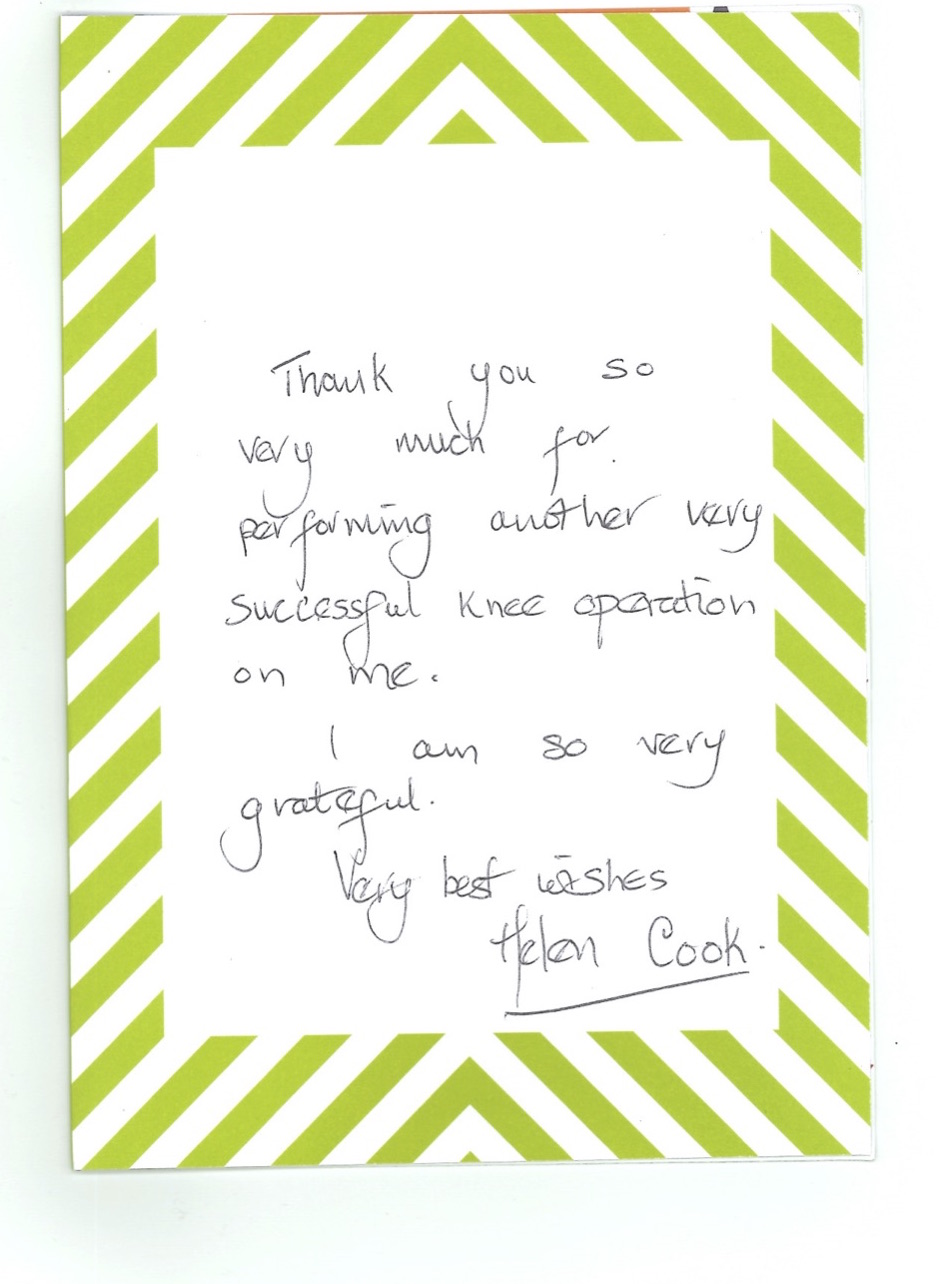 Thank you so
very much for
performing another very
successful knee operation
on me.
I am so very
grateful.
Very best wishes
Helen Cook.